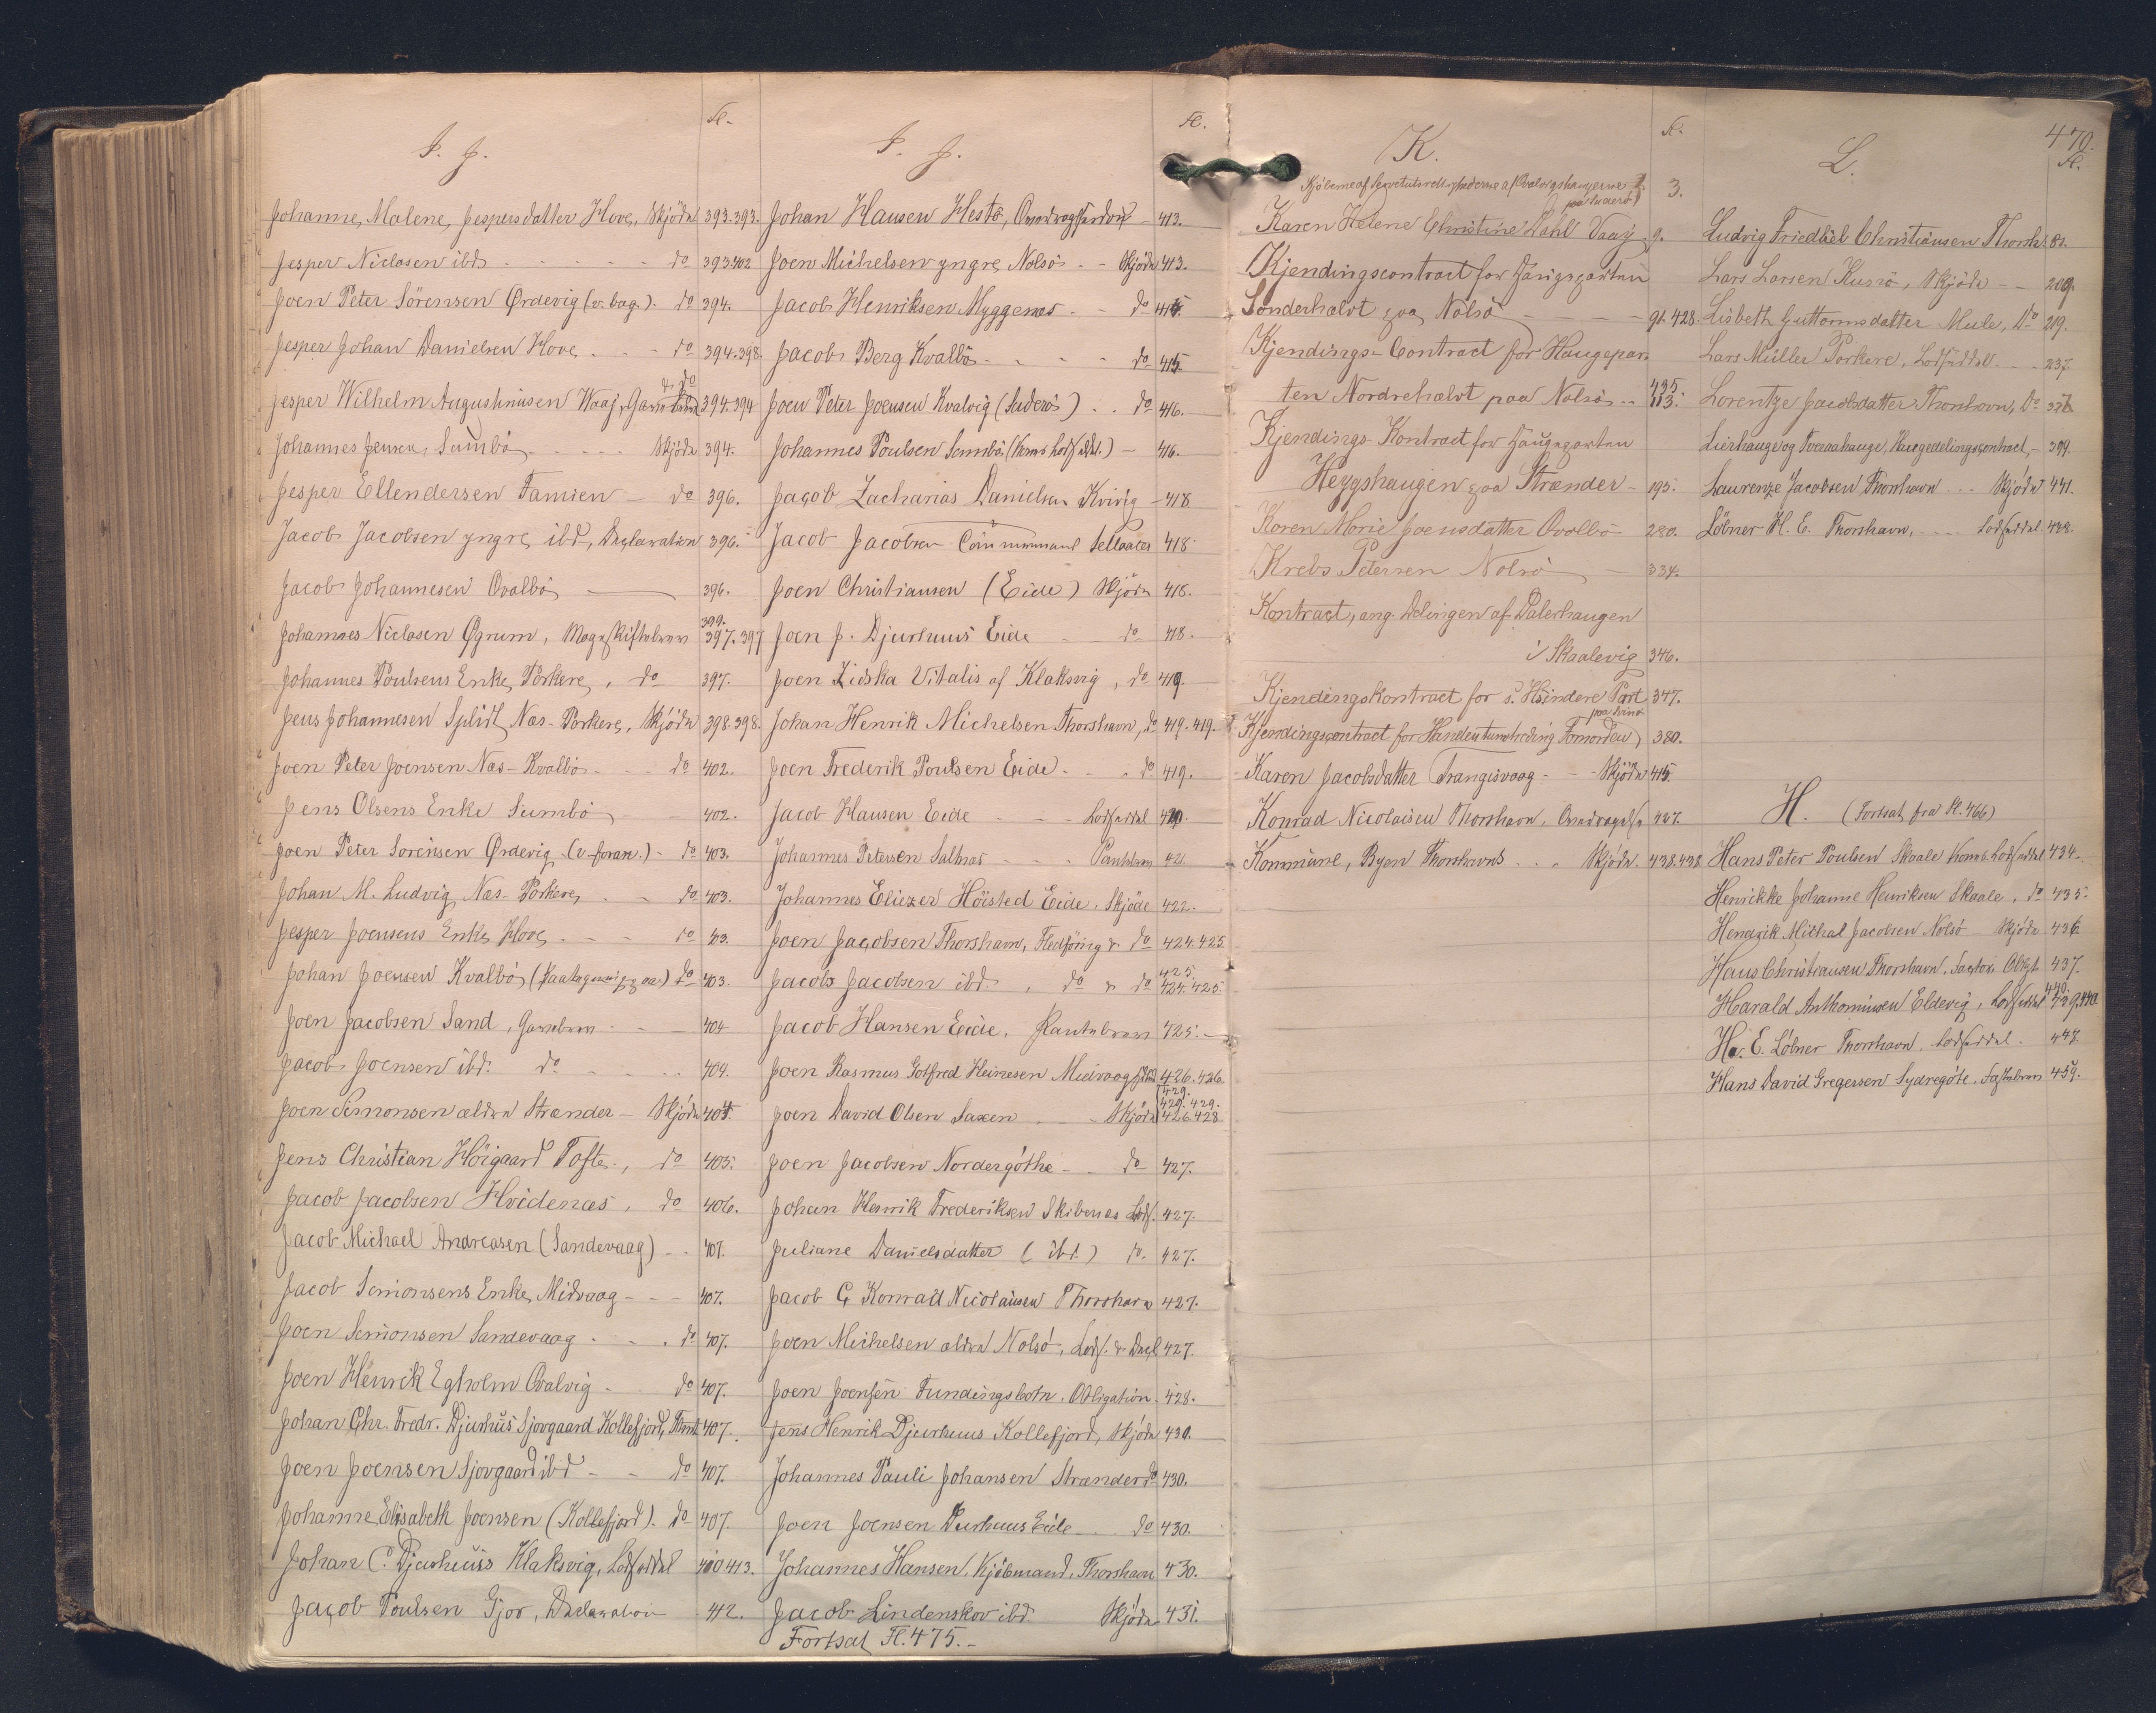 I. J.
Fl.
Johanne, Malene, Jespersdatter Hove, Skjöde 393.393.
Jesper Niclasen ibd. do 393.402
Joen Peter Sörensen Ørdevig (v. bag.) do 394.
Jesper Johan Danielsen Hove do 394.398.
Jesper Wilhelm Augustinusen Waaj, 394.394
Johannes Jensen, Sumbö Skjöde 394.
Jesper Ellendersen Famien do 396.
Jacob Jacobsen yngre, ibd, Declaration 396.
Jacob Johannesen Qvalbö 396.
399.
Johannes Niclasen Øgrum, Mageskiftebrev 397.397
Johannes Poulsens Enke, Porkere, do 397.
Jens Johannesen Splidt Næs-Porkere, Skjöde 398.398.
Joen Peter Joensen Næs-Kvalbö do 402.
Jens Olsens Enke Sumbö 402.
Joen Peter Sörensen Ørdevig (v. foran.) do 403.
Johan M. Ludvig, Næs-Porkere, do 403.
Jesper Joensens Enke, Hove, do 403.
Johan Joensen Kvalbö do 403.
Joen Jacobsen Sand, Gavebrev 404
Jacob Joensen ibd. do 404.
Joen Simonsen ældre Strænder Skjöde 404.
Jens Christian Höigaard Tofte, do 405.
Jacob Jacobsen Hvidenæs, do 406.
Jacob Michael Andreasen (Sandevaag) 407.
Jacob Simonsens Enke, Midvaag 407.
Joen Simonsen Sandevaag do 407.
Joen Henrik Egholm Qvalvig do 407.
Johan Chr. Fredr. Djurhuus Sjovgaard Kollefjord, 407.
Joen Joensen Sjovgaard ibd do 407.
Johanne Elisabeth Joensen (Kollefjord). do 407.
Johan C. Djurhuus Klaksvig, Lodseddel 410 413.
Jacob Poulsen Gjov, Declaration 412.
I. J.
Fl.
Johan Hansen Hestö, 413.
Joen Michelsen yngre, Nolsö Skjöde 413.
Jacob Henriksen Myggenæs do 415.
Jacob Berg Kvalbö do 415
Joen Peter Joensen Kvalvig (Suderö) do 416.
Johannes Poulsen Sumbö, 416.
Jacob Zacharias Danielsen Kvivig 418
Jacob Jacobsen 418
Joen Christiansen (Eide) Skjöde 418.
Joen J. Djurhuus Eide do 418.
Joen Zidska Vitalis af Klaksvig, do 419.
Johan Henrik Michelsen Thorshavn, do 419.419.
Joen Frederik Poulsen Eide do 419.
Jacob Hansen Eide Lodseddel 420.
Johannes Petersen Saltnæs Pantebrev 421
Johannes Eliezer Höisted Eide, Skjöde 422.
Joen Jacobsen Thorshavn, Fledföring & do 424.425.
425.
Jacob Jacobsen ibd. , do & do 424.425.
Jacob Hansen Eide, Pantebrev 425.
Joen Rasmus Gotfred Heinesen Midvaag 426.426
429.
429.429.
Joen David Olsen Saxen Skjöde 426.428
Joen Jacobsen Nordergöthe do 427.
Johan Henrik Frederiksen Skibenæs Lods. 427.
Juliane Danielsdatter (ibd.) do. 427.
Jacob G Konrad Nicolaisen Thorshavn 427.
Joen Michelsen ældre Nolsö, Lods. & Decl 427.
Joen Joensen Fundingsbotn, Obligation. 428.
Jens Henrik Djurhuus Kollefjord, Skjöde 430.
Johannes Pauli Johansen Strænder do 430.
Joen Joensen Durhuus Eide do 430.
Johannes Hansen, Kjöbmand, Thorshavn 430.
Jacob Lindenskov ibd Skjöde 431.
Fortsat Fl. 475.
K.
Fl.
3.
paa Suderö
Karen Helene Christine Dahl Vaag 9.
Kjendingscontract for Haugeparten
Sönderhalvt paa Nolsö 91. 428.
Kjendings-Contract for Haugepar-
ten Nordrehalvt paa Nolsö 435. 113.
Kjendings-Kontract for Haugeparten
Heygshaugen paa Strænder 195.
Karen Marie Joensdatter Qvalbö 280.
Krebs Petersen Nolsö 334.
Kontract, ang. Delingen af Dalerhaugen
i Skaalevig 346.
Kjendingskontract for s. Höindere Part 347.
paa Svinö
380.
Karen Jacobsdatter Trangisvaag Skjöde 415.
Konrad Nicolaisen Thorshavn, 427.
Kommune, Byen Thorshavns Skjöde. 438.438
470.
L.
Fl.
Ludvig Friedlieb Christiansen Thorsh. 81.
Lars Larsen Kunö, Skjöde 209.
Lisbeth Guttormsdatter Mule, do 219.
Lars Müller Porkere, Lodseddel 237.
Lorentze Jacobsdatter Thorshavn, do
394.
Laurenze Jacobsen Thorshavn Skjöde 441.
Löbner H. E. Thorshavn, Lodseddel. 448.
H. (Fortsat fra Fl. 466)
Hans Peter Poulsen Skaale Lodseddel 434.
Henrikke Johanne Henriksen Skaale, do 435.
Hendrik Michal Jacobsen Nolsö Skjöde 436
Hans Christiansen Thorshavn, Obligt. 437.
440.
Harald Anthoniusen Eldevig, Lodseddel 439.440
Ha. E. Löbner Thorshavn, Lodseddel. 448.
Hans David Gregersen Sydregöte, Fæstebrev 459.